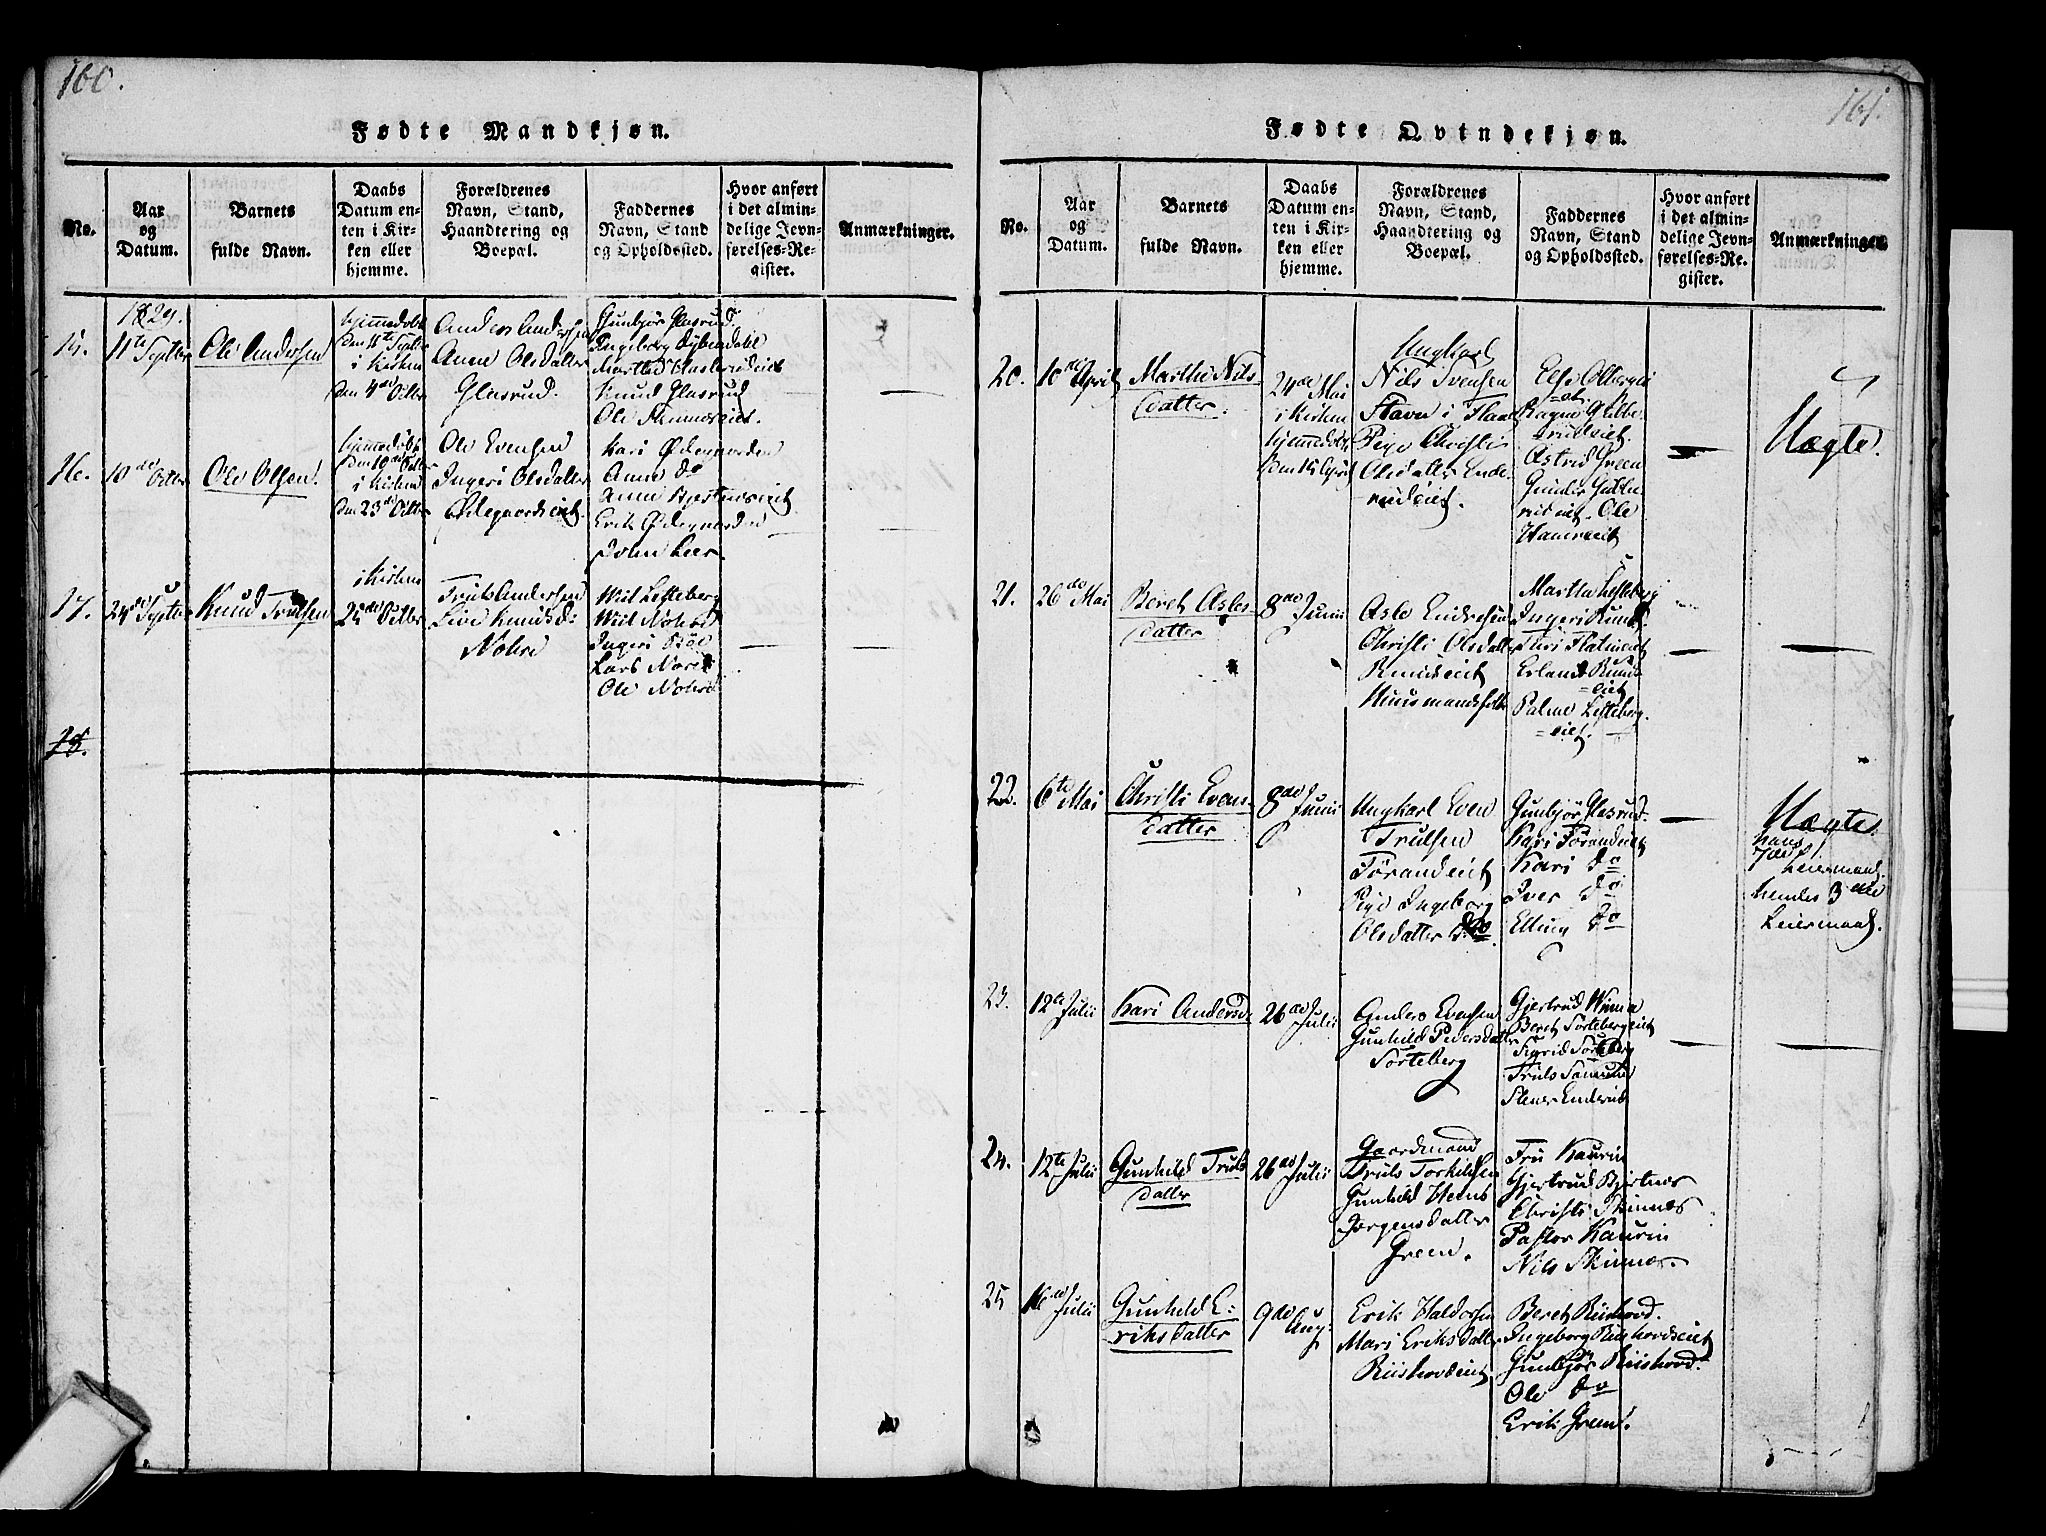 160.
Fødte Mandkjøn.
No.
Aar
og
Datum.
Barnets
fulde Navn.
Daabs
Datum en-
ten i Kir-
ken eller
hjemme.
Forældrenes
Navn, Stand,
Haandtering og
Boepæl.
Faddernes
Navn, Stand
og Opholdssted.
Hvor anført
i det almin-
delige Jevn-
førelses-Re-
gister.
Anmærkninger.
1829.
15.
11te Septbr
Ole Andersen
hjemmedøbt
den 11te Septbr
i Kirken
den 4de Octbr
Anders Andersen
Anne Olsdatter
Glasrud.
Gunbjør Glasrud
Ingeborg
Knud Glasrud
Ole
16.
10de Octbr
Ole Olsen.
hjemmedøbt
den 10de Octbr
i Kirken
den 23de Octbr
Ole Evensen
Ingeri Olsdatter
Ødegaardseiet.
Kari Ødegaarden
Anne do
Anne
Erik Ødegaarden
John Leer.
17.
24de Septbr
Knud Trulsen
i Kirken
25de Octbr
Truls Andersen
Live Knudsd:
Nohre
Lesteberg
Nohre
Ingeri Bøe
Lars Nore
Ole Nohre
18.
161.
Fødte Qvindekjøn.
No.
Aar
og
Datum.
Barnets
fulde Navn.
Daabs
Datum en-
ten i Kir-
ken eller
hjemme.
Forældrenes
Navn, Stand,
Haandtering og
Boepæl.
Faddernes
Navn, Stand
og Opholdssted.
Hvor anført
i det almin-
delige Jevn-
førelses-Re-
gister.
Anmærkninger.
20.
10de April
Marthe Nils-
datter.
24de Mai
i Kirken
hjemmedøbt
den
April
Ungkarl
Nils Svensen
Stavn i Flaae
Pige Christi
Olsdatter Ende-
rudeiet.
Else
Ragne
rudeiet.
Astrid Green
Gunder
rudeiet. Ole
Uægte.
21.
26de Mai
Beret Asles-
datter
8de Junii
Asle Endresen
Christi Olsdatter
Ruudseiet
Huusmandsfolk
Martha Lesteberg
Ingeri Ruud
Erland Ruuds-
=eiet
Palme Lesteberg-
=eiet.
22.
6te Mai
Christi Evens-
datter
8de Junii
Ungkarl Even
Trulsen
Førandeiet
Pige Ingeborg
Olsdatter do.
Gunbjør Glasrud.
Kari Førandeiet
Kari do
Iver do
Elling do
Uægte.
hans
Leiermaal.
hendes 3die
Leiermaal.
23.
12te Julii
Kari Andersd:
26de Julii
Anders Evensen
Gunhild Pedersdatter
Sorteberg
Gjertrud
Beret Sortebergeiet
Sigrid Sorteberg
Truls
Stener Enderud
24.
12te Julii
Gunhild Truls
datter
26de Julii
Gaardmand
Truls Torkildsen
Gunhild
Jørgensdatter
Green.
Fru Kaurin
Gjertrud Bjertnes
Christi Skinnes
Pastor Kaurin
Nils Skinnes.
25
16de Julii
Gunhild E-
riksdatter
9de Aug:
Erik Haldorsen
Mari Eriksdatter
Riishovdeiet
Beret Riishovd.
Ingeborg Riishovdseiet
Gunbjør Riishovd.
Ole do
Erik Green.